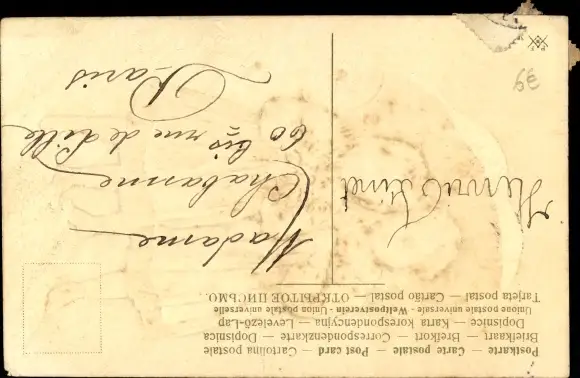 Postkarte — Carte postale — Post card — Cartolina postale
Briefkaart — Brefkort — Correspondenzkarte — Dopisnica
Dopisnice — Karta korespondencyjna — Levelező-Lap
Union postale universelle - Weltpostverein - Union postale universelle
Tarjeta postal — Cartão postal — ОТКРЫТОЕ ПИСЬМО.
Henri
Madame
Chabanne
60 bis rue de Lille
Paris